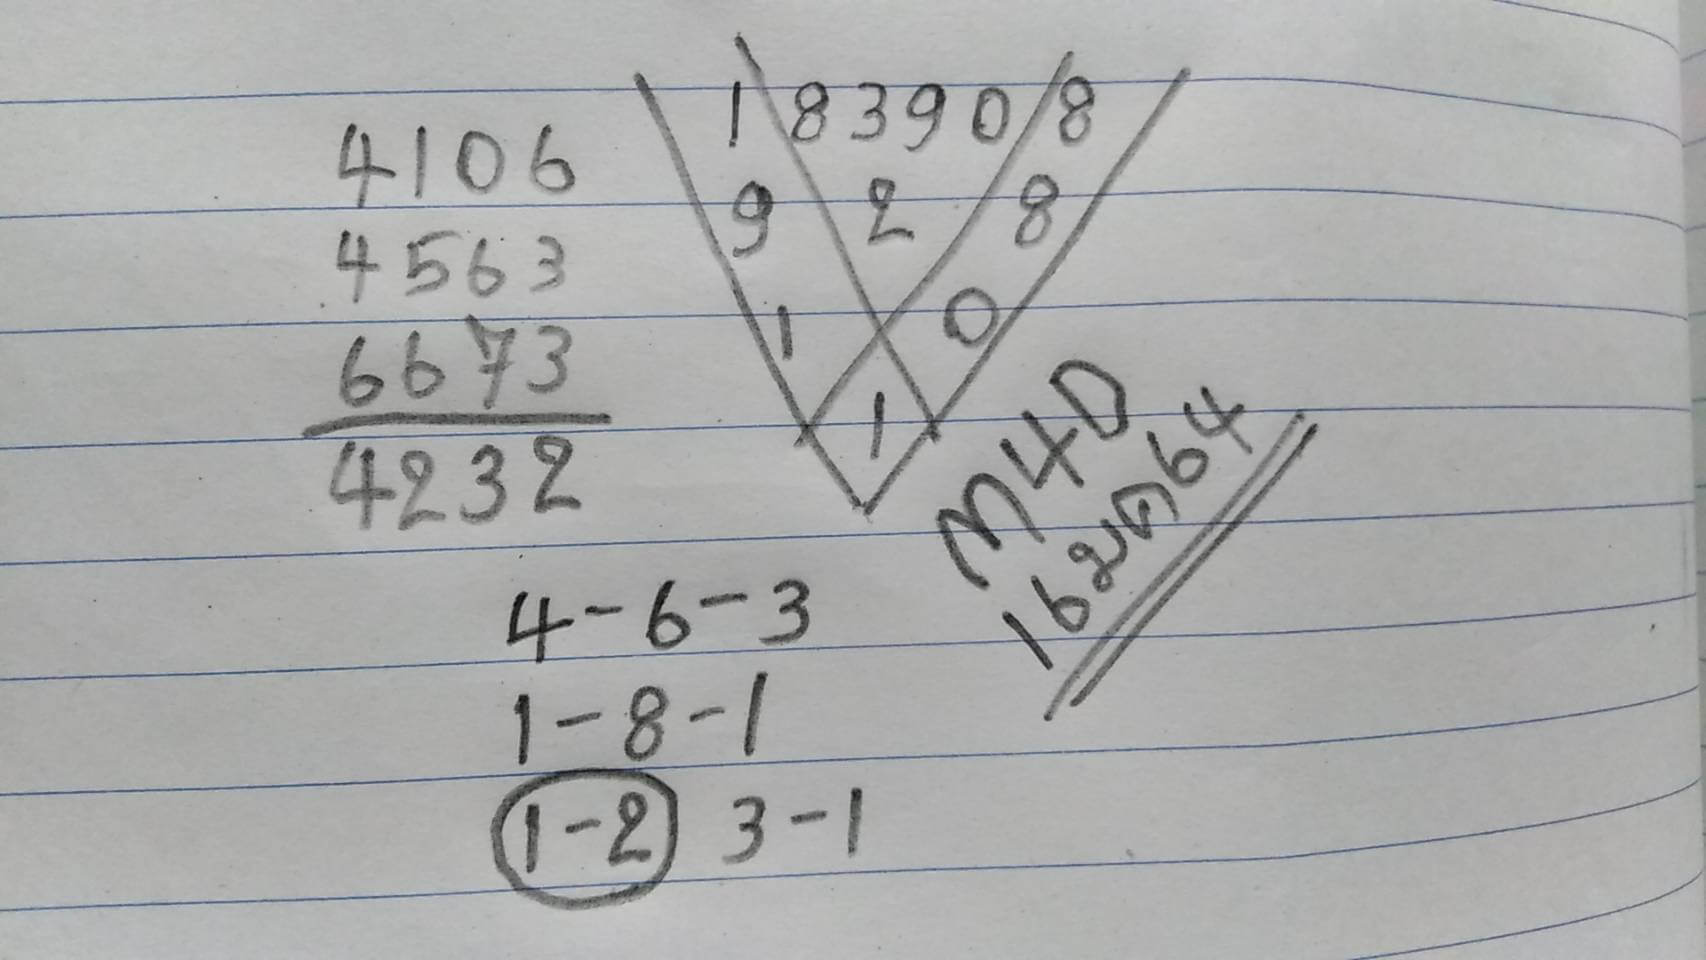 4106
4563
6673
4232
1 8390 8
9 2 8
1 0
1
M4D
16มค64
4-6-3
1-8-1
1-2 3-1